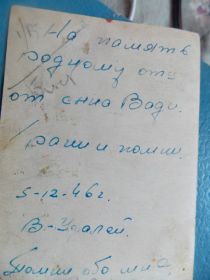 На память
родному отцу
от сына Вади.
Храни и помни
5-12-46г.
В-Уфалей.
Помни обо мне.